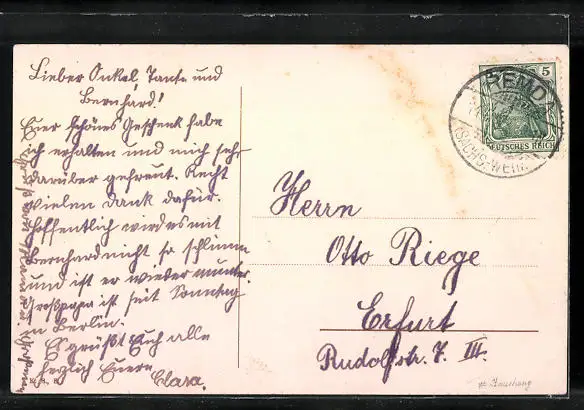 Lieber Onkel, Tante und
Bernhard!
Euer schönes Geschenk habe
ich erhalten und mich sehr
darüber gefreut. Recht
vielen Dank dafür.
Hoffentlich wird es mit
Bernhard nicht so schlimm
und ist er wieder munter.
Großpapa ist seit Sonntag
in Berlin.
Es grüßt Euch alle
herzlich Eure
Clara.
REMDA
5
DEUTSCHES REICH
Herrn
Otto Riege
Erfurt
Rudolfstr. 7 III.